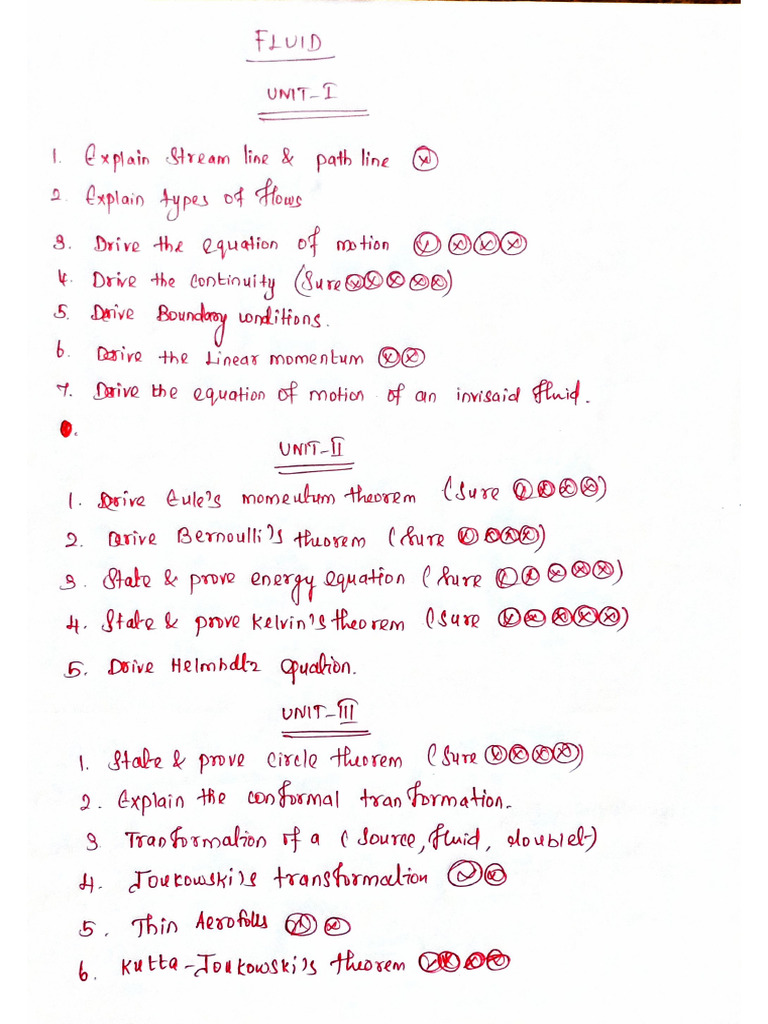 FLUID
UNIT-I
1. Explain Stream line & path line ⓧ
2. Explain types of flows
3. Drive the equation of motion ⓧ ⓧ ⓧ ⓧ
4. Drive the continuity (Sure ⓧ ⓧ ⓧ ⓧ ⓧ)
5. Drive Boundary conditions.
6. Drive the Linear momentum ⓧ ⓧ
7. Drive the equation of motion of an invisaid fluid.
UNIT-II
1. Drive Eule's momentum theorem (Sure ⓧ ⓧ ⓧ ⓧ)
2. Drive Bernoulli's theorem (Sure ⓧ ⓧ ⓧ ⓧ)
3. State & prove energy equation (Sure ⓧ ⓧ ⓧ ⓧ ⓧ)
4. State & prove Kelvin's theorem (Sure ⓧ ⓧ ⓧ ⓧ ⓧ)
5. Drive Helmholtz equation.
UNIT-III
1. State & prove circle theorem (Sure ⓧ ⓧ ⓧ ⓧ)
2. Explain the conformal transformation.
3. Transformation of a (source, fluid, doublet)
4. Joukowski's transformation ⓧ ⓧ
5. Thin Aerofoils ⓧ ⓧ
6. Kutta-Joukowski's theorem ⓧ ⓧ ⓧ ⓧ